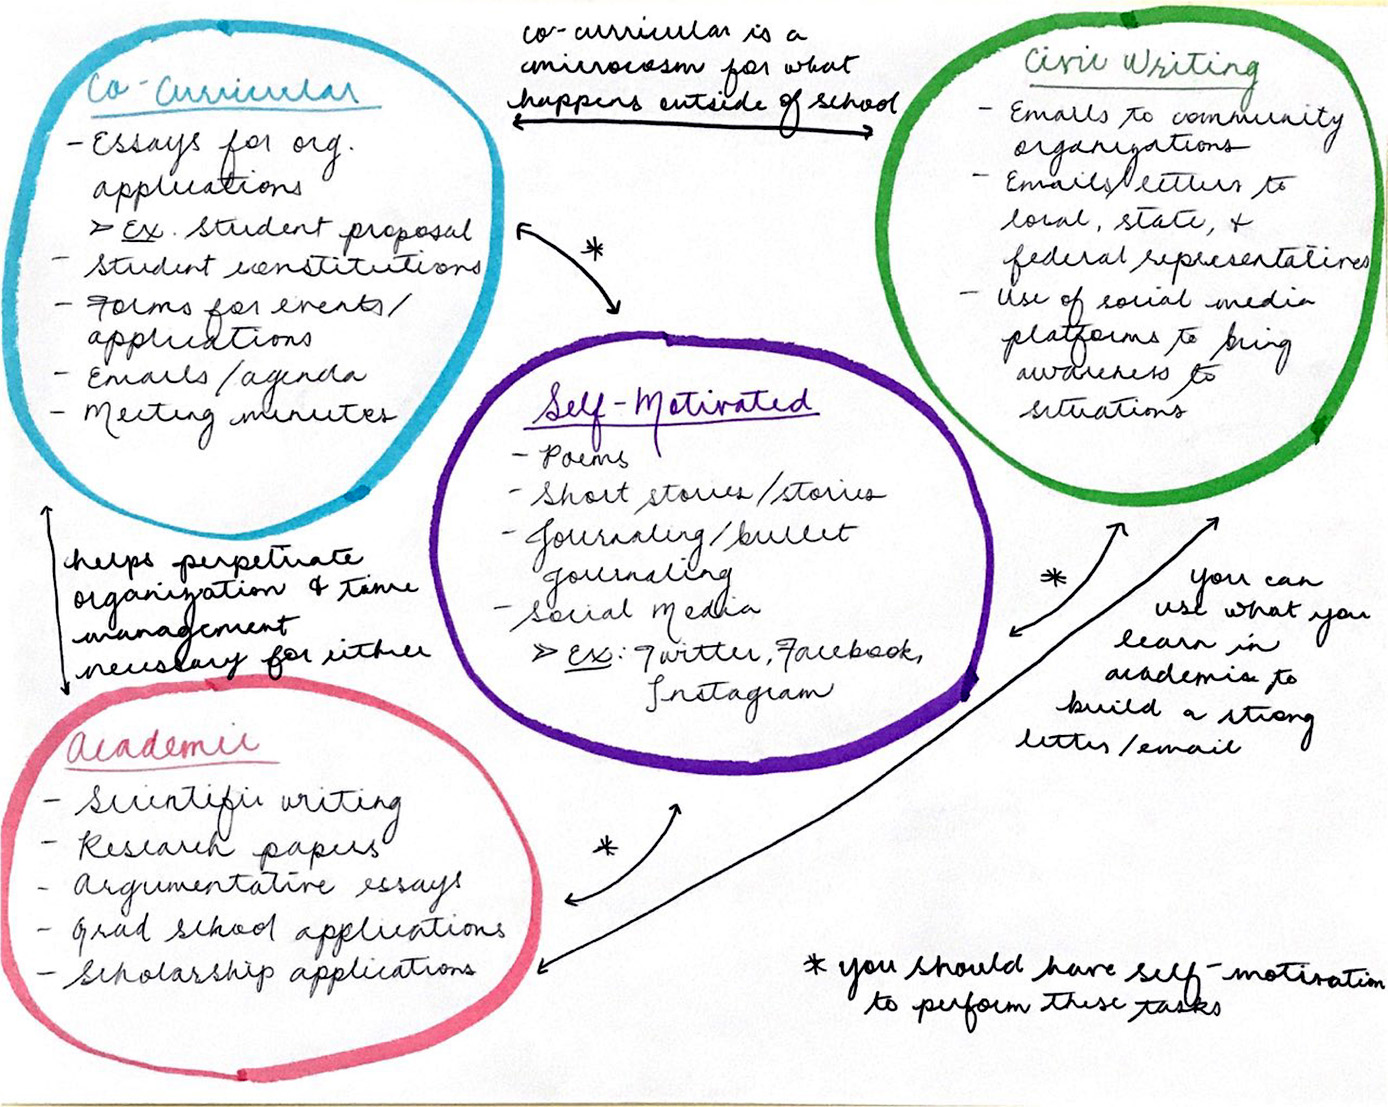 Co-Curricular
- Essays for org.
applications
> Ex. Student proposal
- Student constitutions
- Forms for events/
applications
- Emails/agenda
- Meeting minutes
co-curricular is a
microcosm for what
happens outside of school
Civic Writing
- Emails to community
organizations
- Emails/letters to
local, state, +
federal representatives
- Use of social media
platforms to bring
awareness to
situations
*
Self-Motivated
- Poems
- Short stories/stories
- Journaling/bullet
journaling
- Social Media
> Ex: Twitter, Facebook,
Instagram
helps perpetuate
organization & time
management
necessary for either
*
you can
use what you
learn in
academia to
build a strong
letter/email
Academic
- Scientific writing
- Research papers
- Argumentative essays
- Grad school applications
- Scholarship applications
*
* you should have self-motivation
to perform these tasks